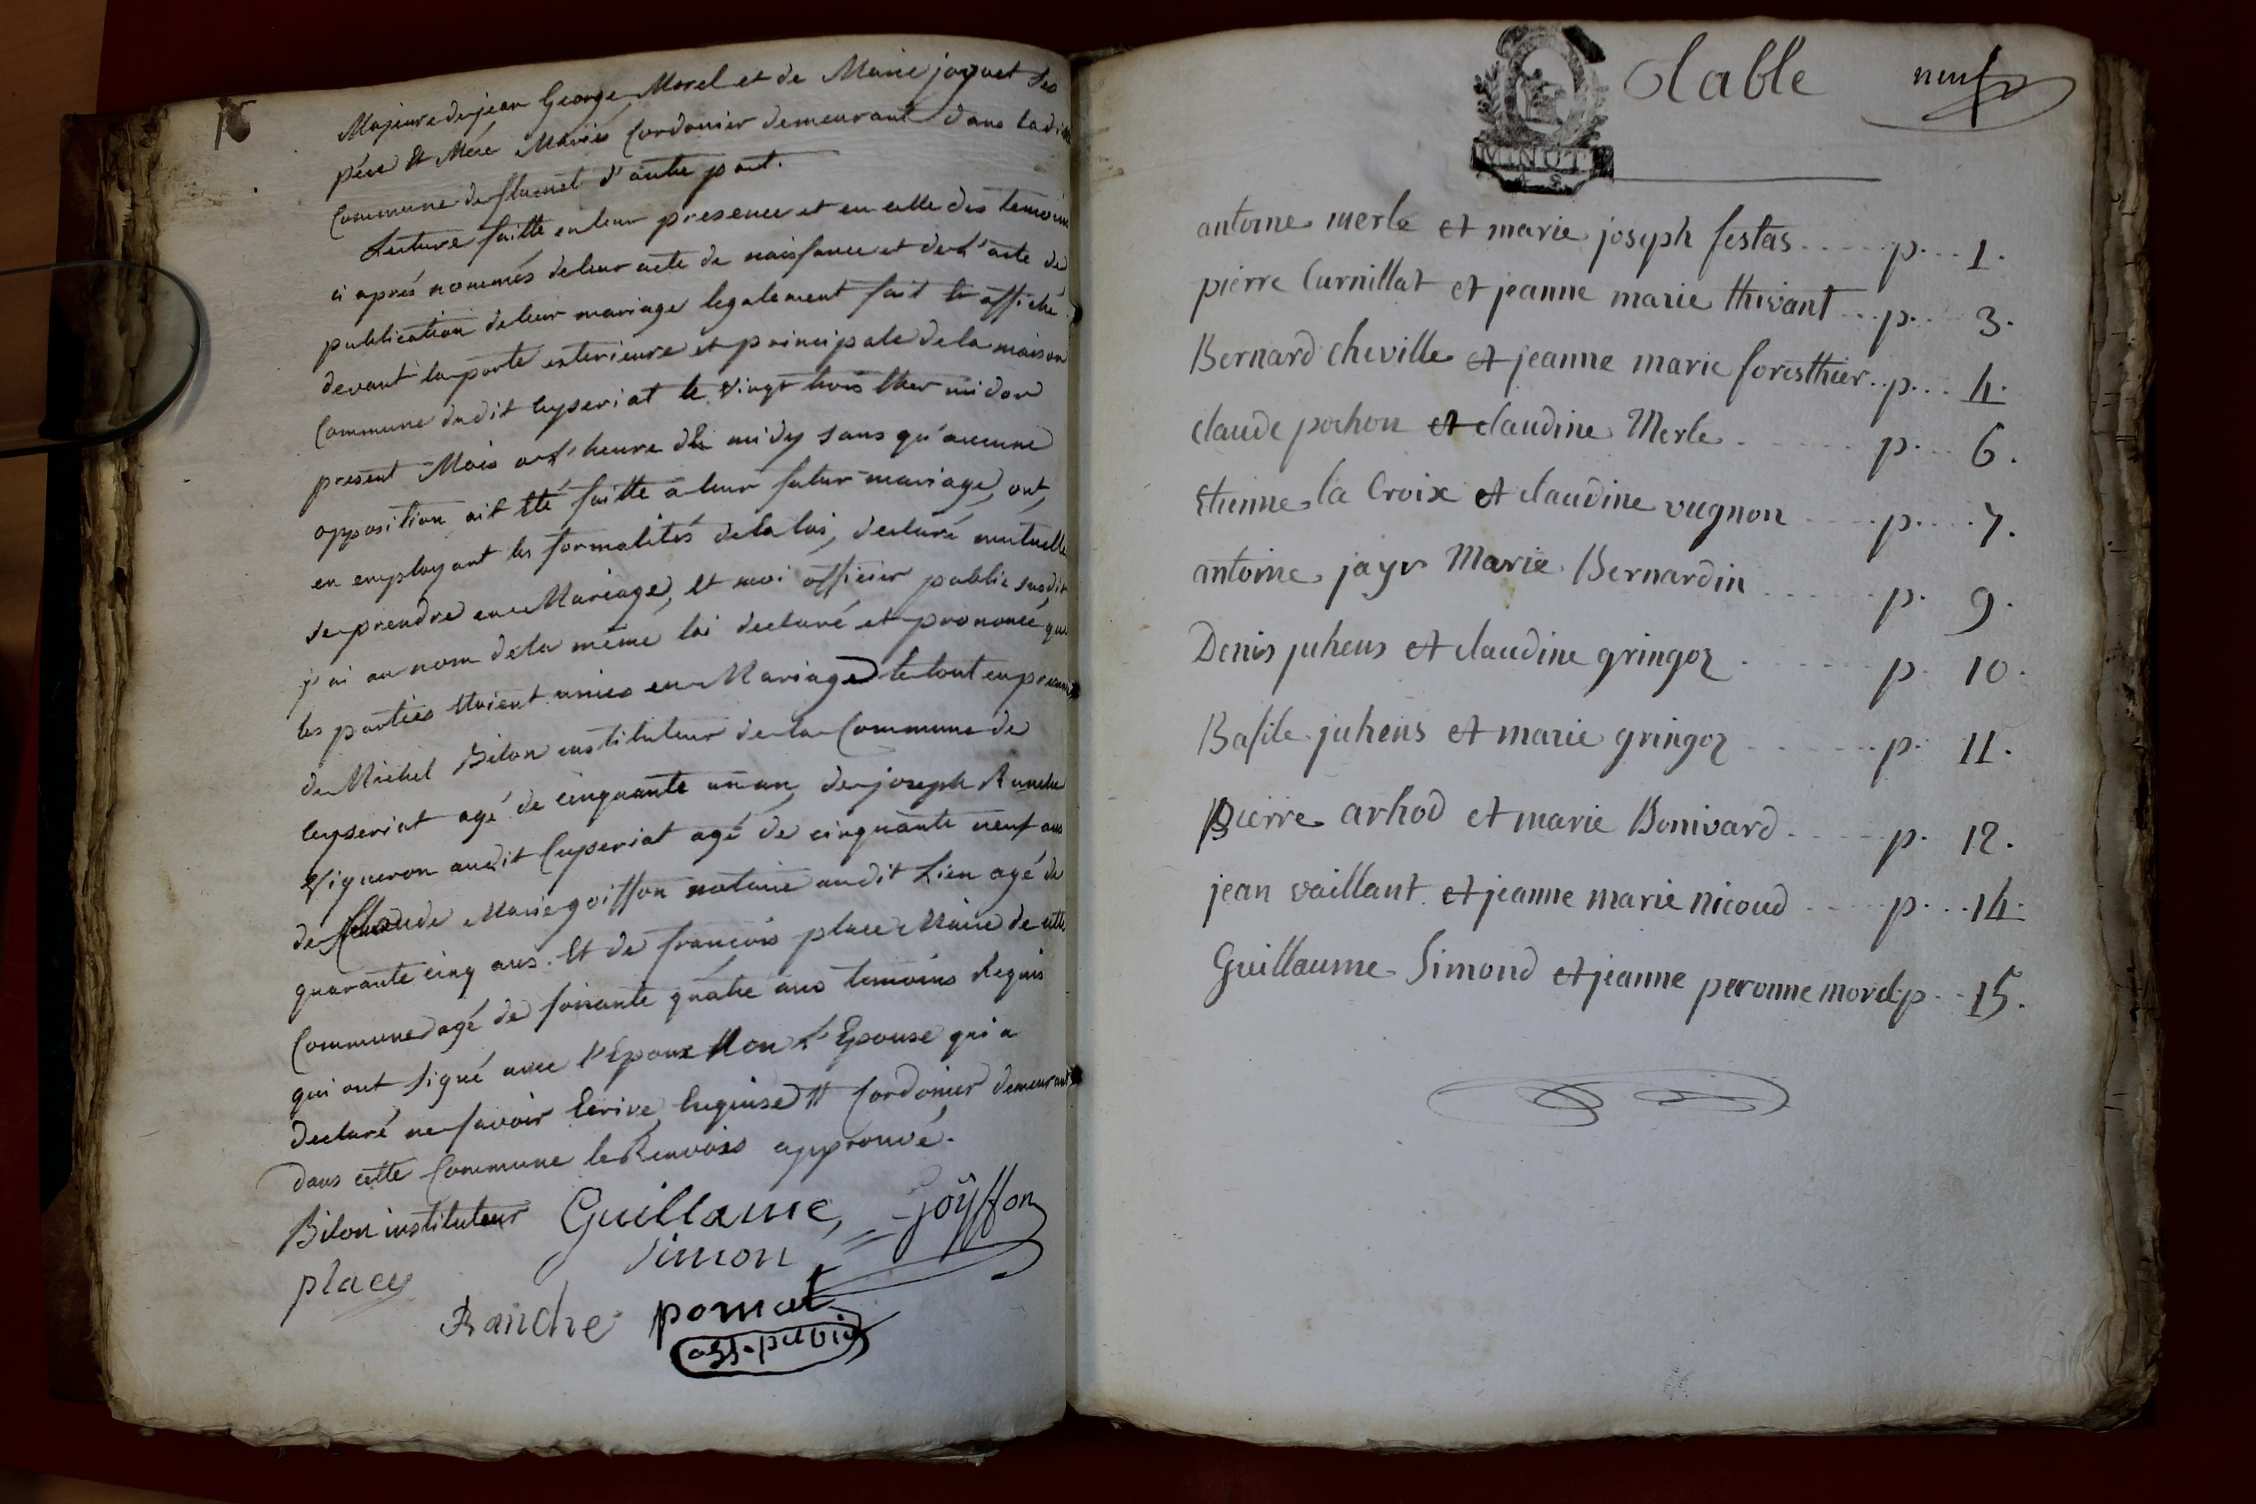 Majeure de jean George Morel et de Marie joquet Ses
père et Mére Mariés Cordonier demeurant dans ladite
Commune de flumet d'autre part.
Lecture faitte en leur presence et en celle des temoins
ci aprés nommés de leur acte de naissance et de L'acte de
publication de leur mariage legalement fait et affiché
devant la porte exterieure et principale de la maison
Commune dudit Ceyseriat le vingt trois thermidor
present Mois a l'heure de midy sans qu'aucune
opposition ait été faitte a leur futur mariage, ont,
en employant les formalités de la loi, declaré mutuelle
se prendre en Mariage, et moi officier public susdit
j'ai au nom de la même loi declaré et prononcé que
les parties étoient unies en Mariage le tout en presence
de Michel Bilon instituteur de la Commune de
Ceyseriat agé de cinquante un an, de joseph Ranche
Vigneron audit Ceyseriat agé de cinquante neuf ans
de Claude Marie goiffon notaire audit Lieu agé de
quarante cinq ans. Et de françois place Maire de cette
Commune agé de soixante quatre ans temoins Requis
qui ont signé avec l'Epoux Non L'Epouse qui a
declaré ne savoir Ecrire, Enquise # Cordonier demeurant
dans cette Commune le Renvois approuvé.
Bilon instituteur Guillaume Goÿffon
simon
place
Ranche pomat
off. public
MINUT
table neuf
antoine merle et marie joseph festas p. 1.
pierre Curnillat et jeanne marie thivant p. 3.
Bernard cheville et jeanne marie foresthier p. 4.
claude pochon et claudine Merle p. 6.
Etienne la Croix et claudine vugnon p. 7.
antoine jayr Marie Bernardin p. 9.
Denis juhens et claudine gringoz p. 10.
Basile juhens et marie gringoz p. 11.
pierre arhod et marie Bonivard p. 12.
jean vaillant et jeanne marie nicoud p. 14.
Guillaume Simond et jeanne peronne morel p. 15.